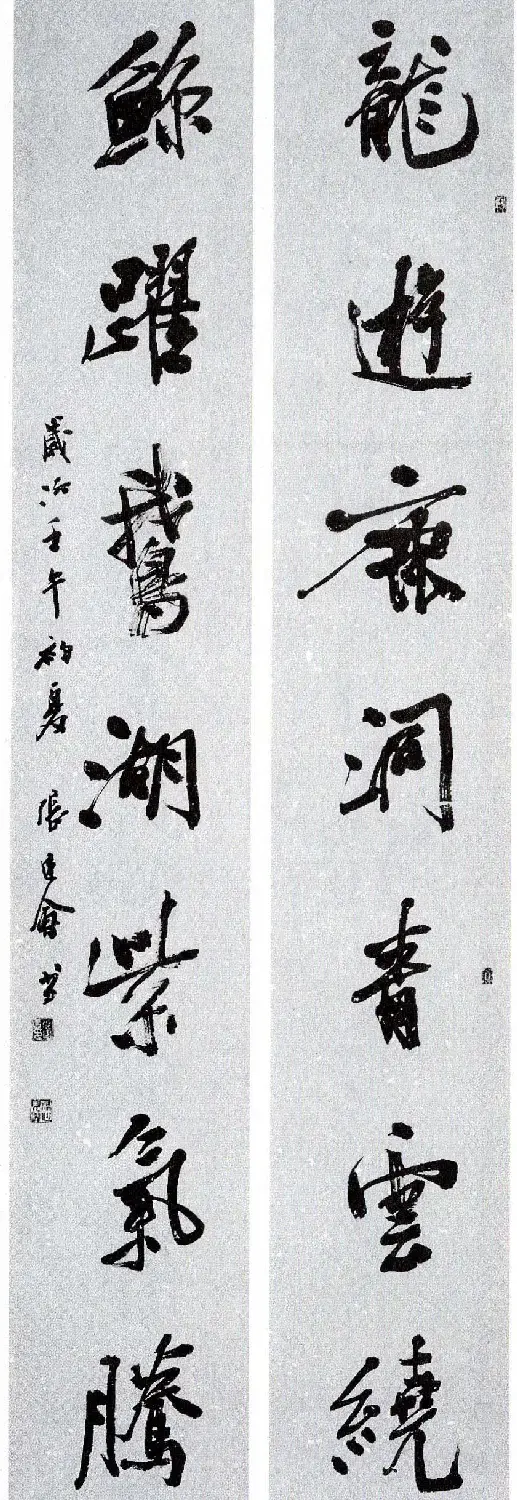 龍遊鹿洞青雲繞
鯨躍鵝湖紫氣騰
歲次壬午初夏張建會書